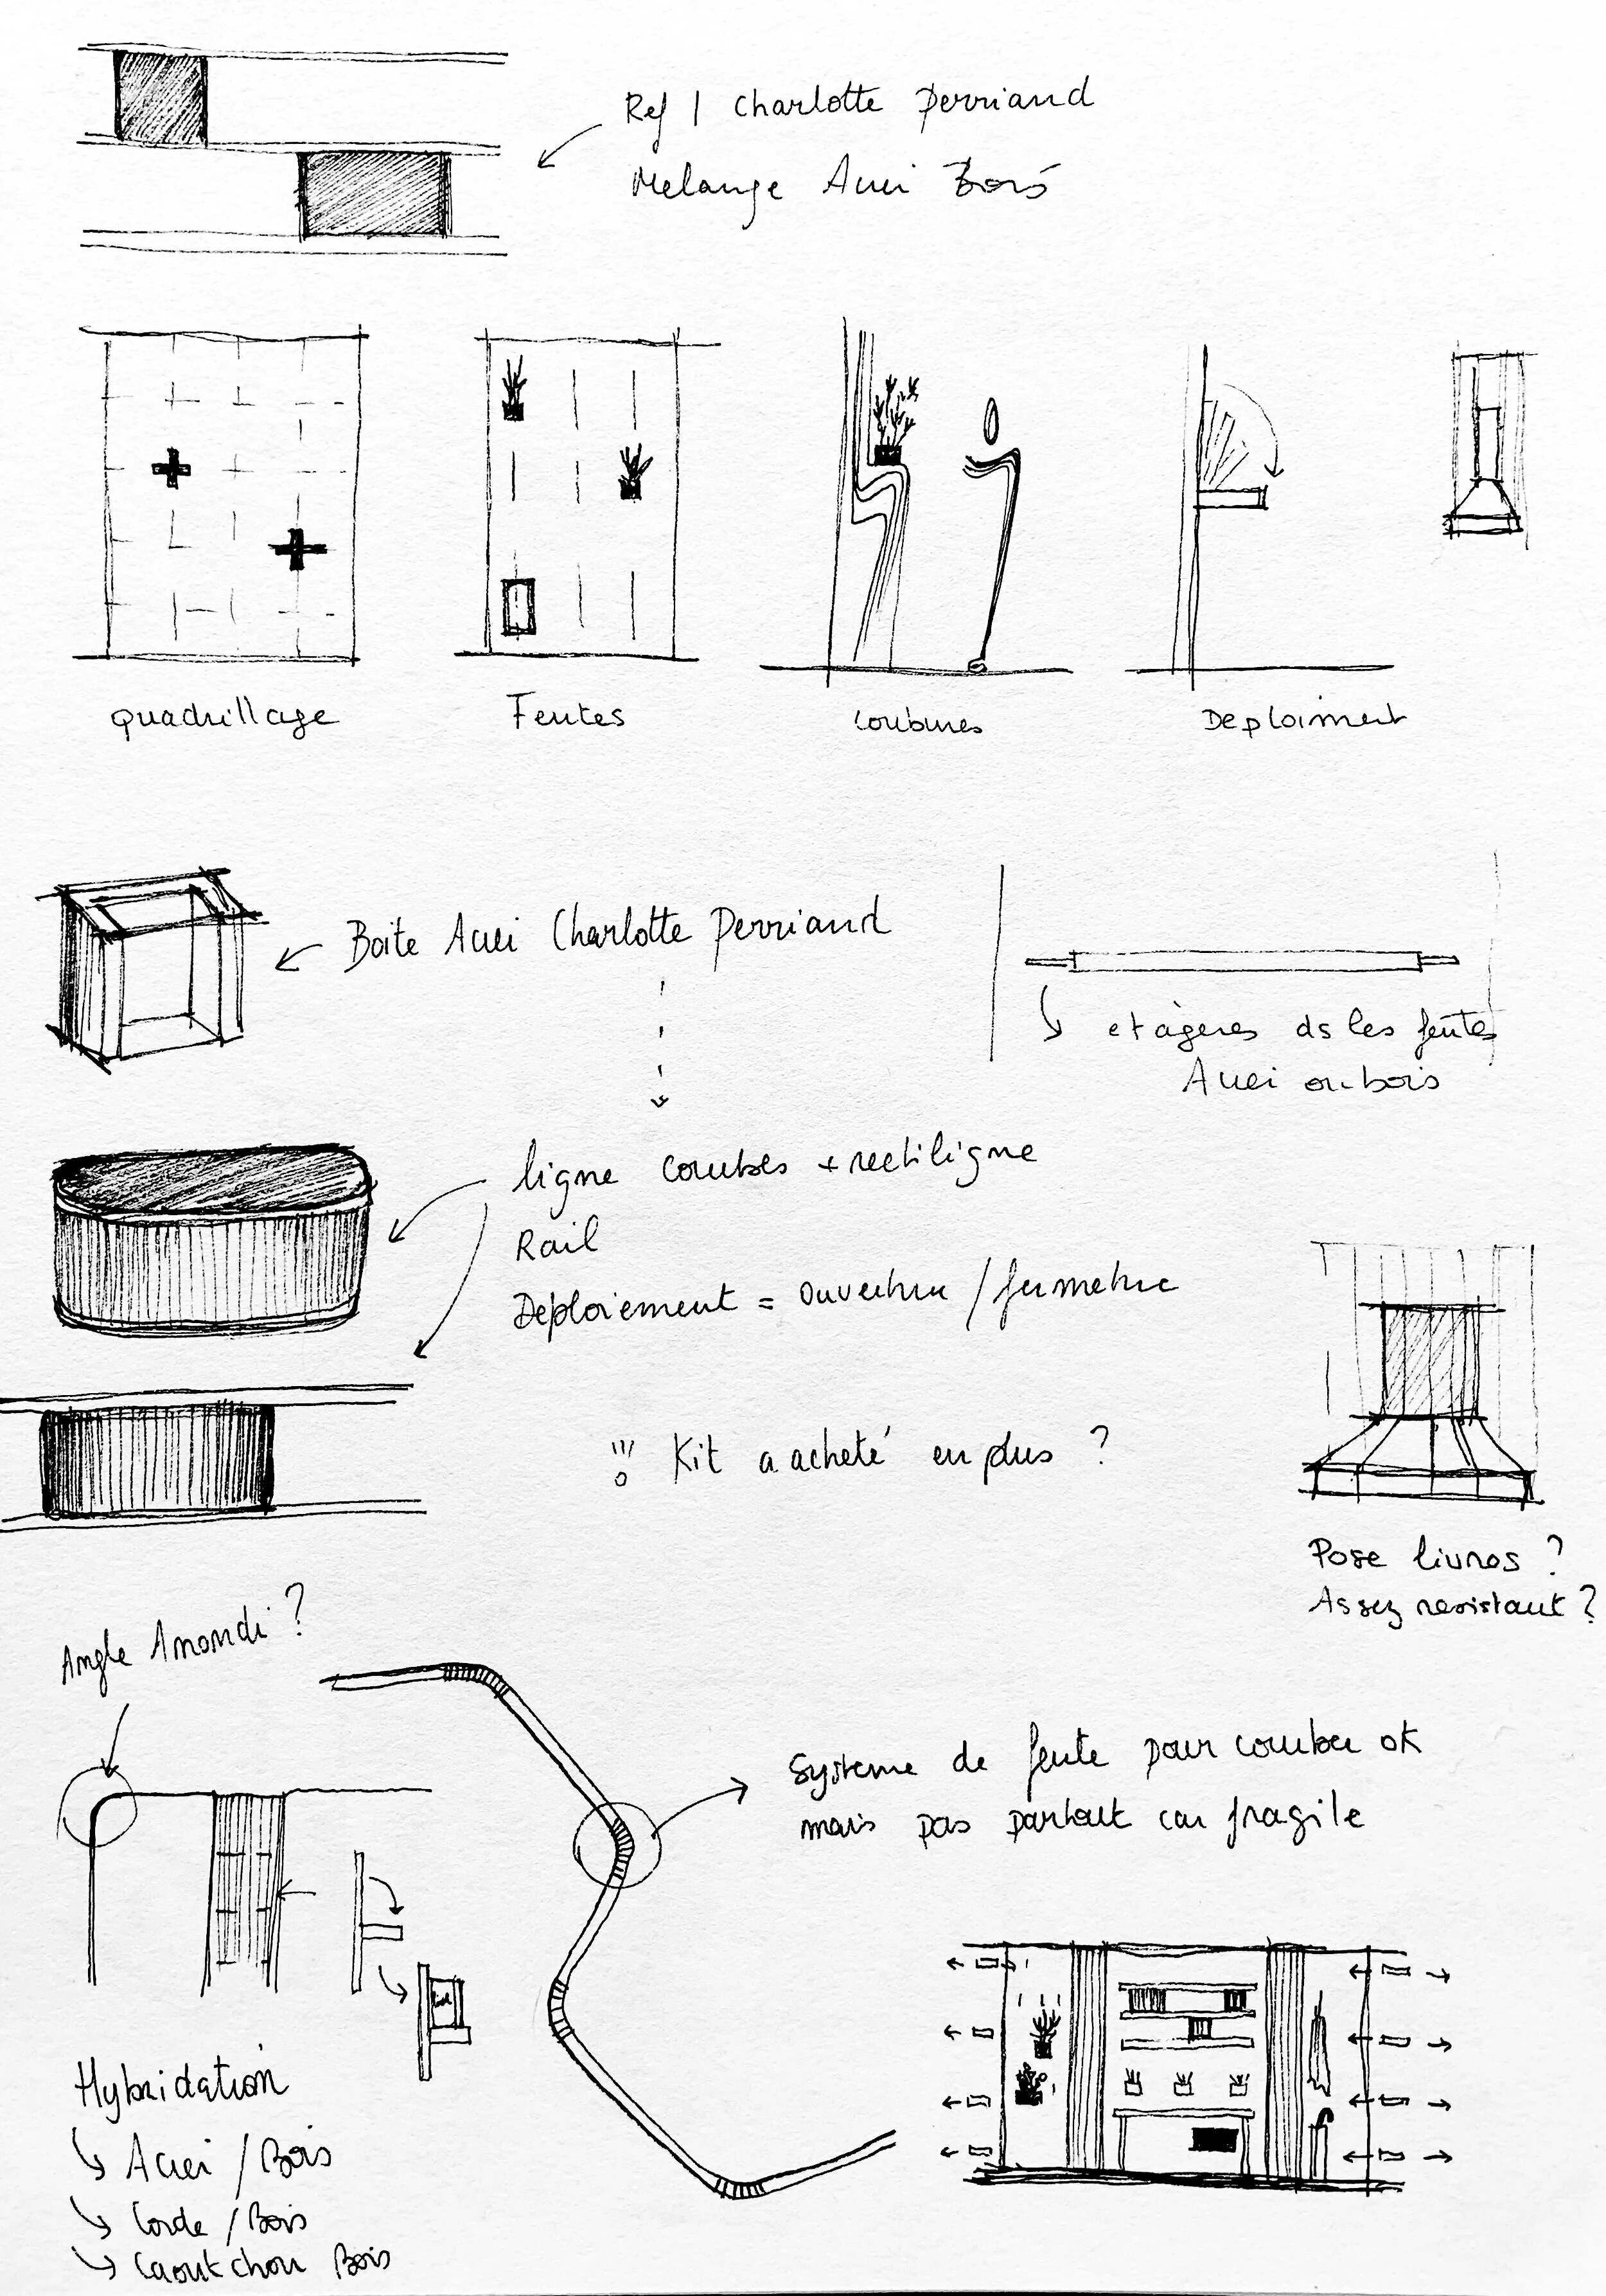 Ref | Charlotte Perriand
Melange Acier Bois
quadrillage
Fentes
courbures
Deploiment
Boite Acier Charlotte Perriand
etagères ds les fentes
Acier ou bois
ligne courbes + rectiligne
Rail
Déploiement = Ouverture / fermeture
!!! Kit a acheté en plus ?
Pose livres ?
Assez resistant ?
Angle Arrondi ?
Systeme de fente pour courber ok
mais pas partout car fragile
Hybridation
↳ Acier / Bois
↳ Corde / Bois
↳ Caoutchou Bois